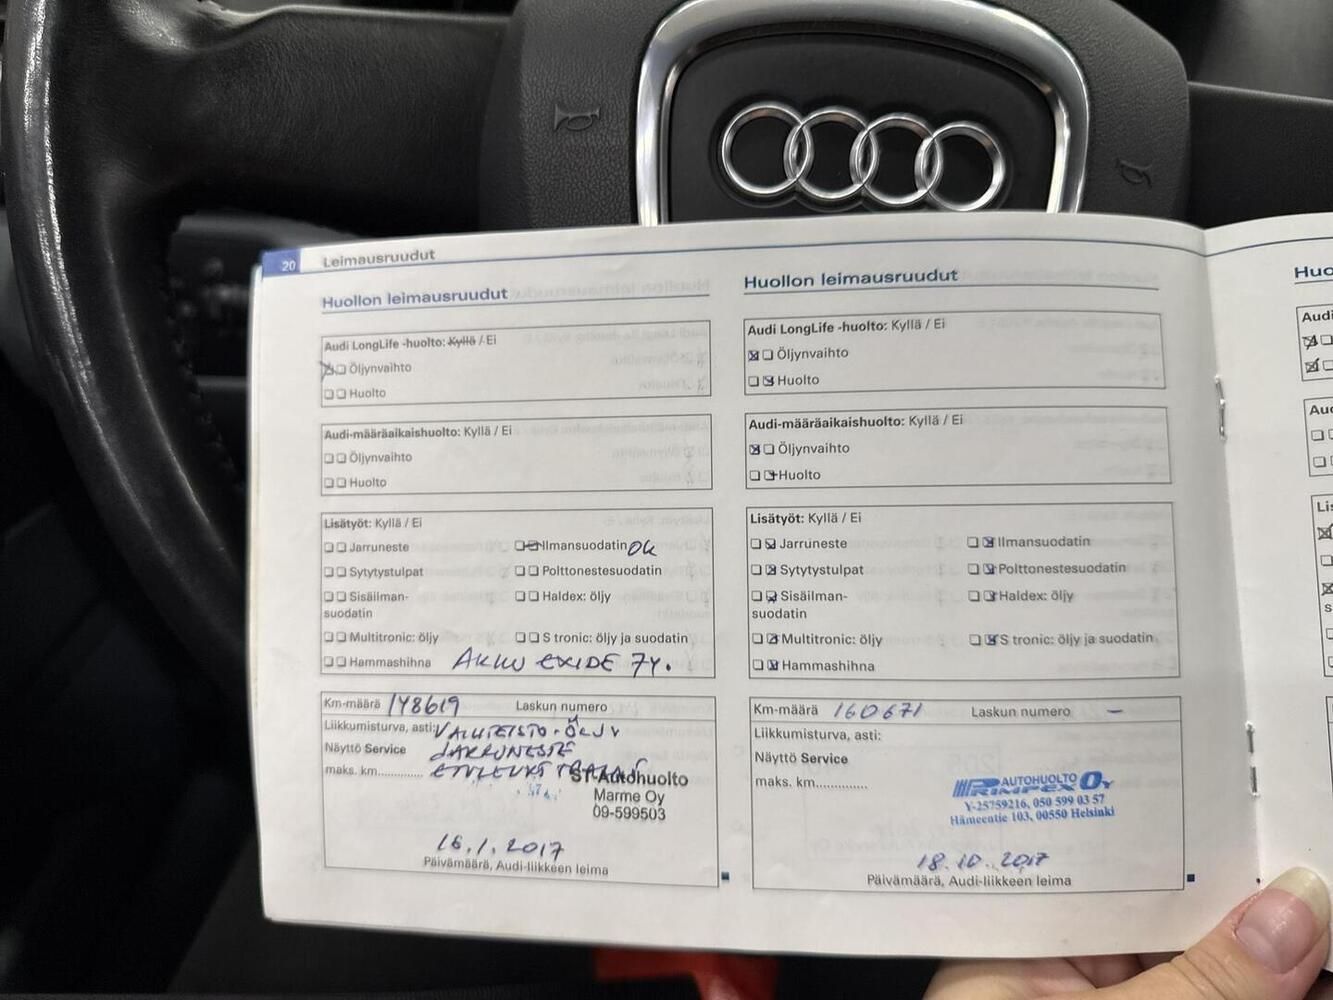 20 Leimausruudut
Huollon leimausruudut
Audi LongLife -huolto: Kyllä / Ei
Öljynvaihto
Huolto
Audi-määräaikaishuolto: Kyllä / Ei
Öljynvaihto
Huolto
Lisätyöt: Kyllä / Ei
Jarruneste Ilmansuodatin OK
Sytytystulpat Polttonestesuodatin
Sisäilman- Haldex: öljy
suodatin
Multitronic: öljy S tronic: öljy ja suodatin
Hammashihna AKKU EXIDE 74.
Km-määrä 148619 Laskun numero
Liikkumisturva, asti:
Näyttö Service JARRUNESTE
maks. km..............
ST-Autohuolto
Marme Oy
09-599503
16.1.2017
Päivämäärä, Audi-liikkeen leima
Huollon leimausruudut
Audi LongLife -huolto: Kyllä / Ei
Öljynvaihto
Huolto
Audi-määräaikaishuolto: Kyllä / Ei
Öljynvaihto
Huolto
Lisätyöt: Kyllä / Ei
Jarruneste Ilmansuodatin
Sytytystulpat Polttonestesuodatin
Sisäilman- Haldex: öljy
suodatin
Multitronic: öljy S tronic: öljy ja suodatin
Hammashihna
Km-määrä 160671 Laskun numero –
Liikkumisturva, asti:
Näyttö Service
maks. km..............
AUTOHUOLTO
PRIMPEX OY
Y-25759216, 050 599 03 57
Hämeentie 103, 00550 Helsinki
18.10.2017
Päivämäärä, Audi-liikkeen leima
Huo
Audi
Au
Lis
s